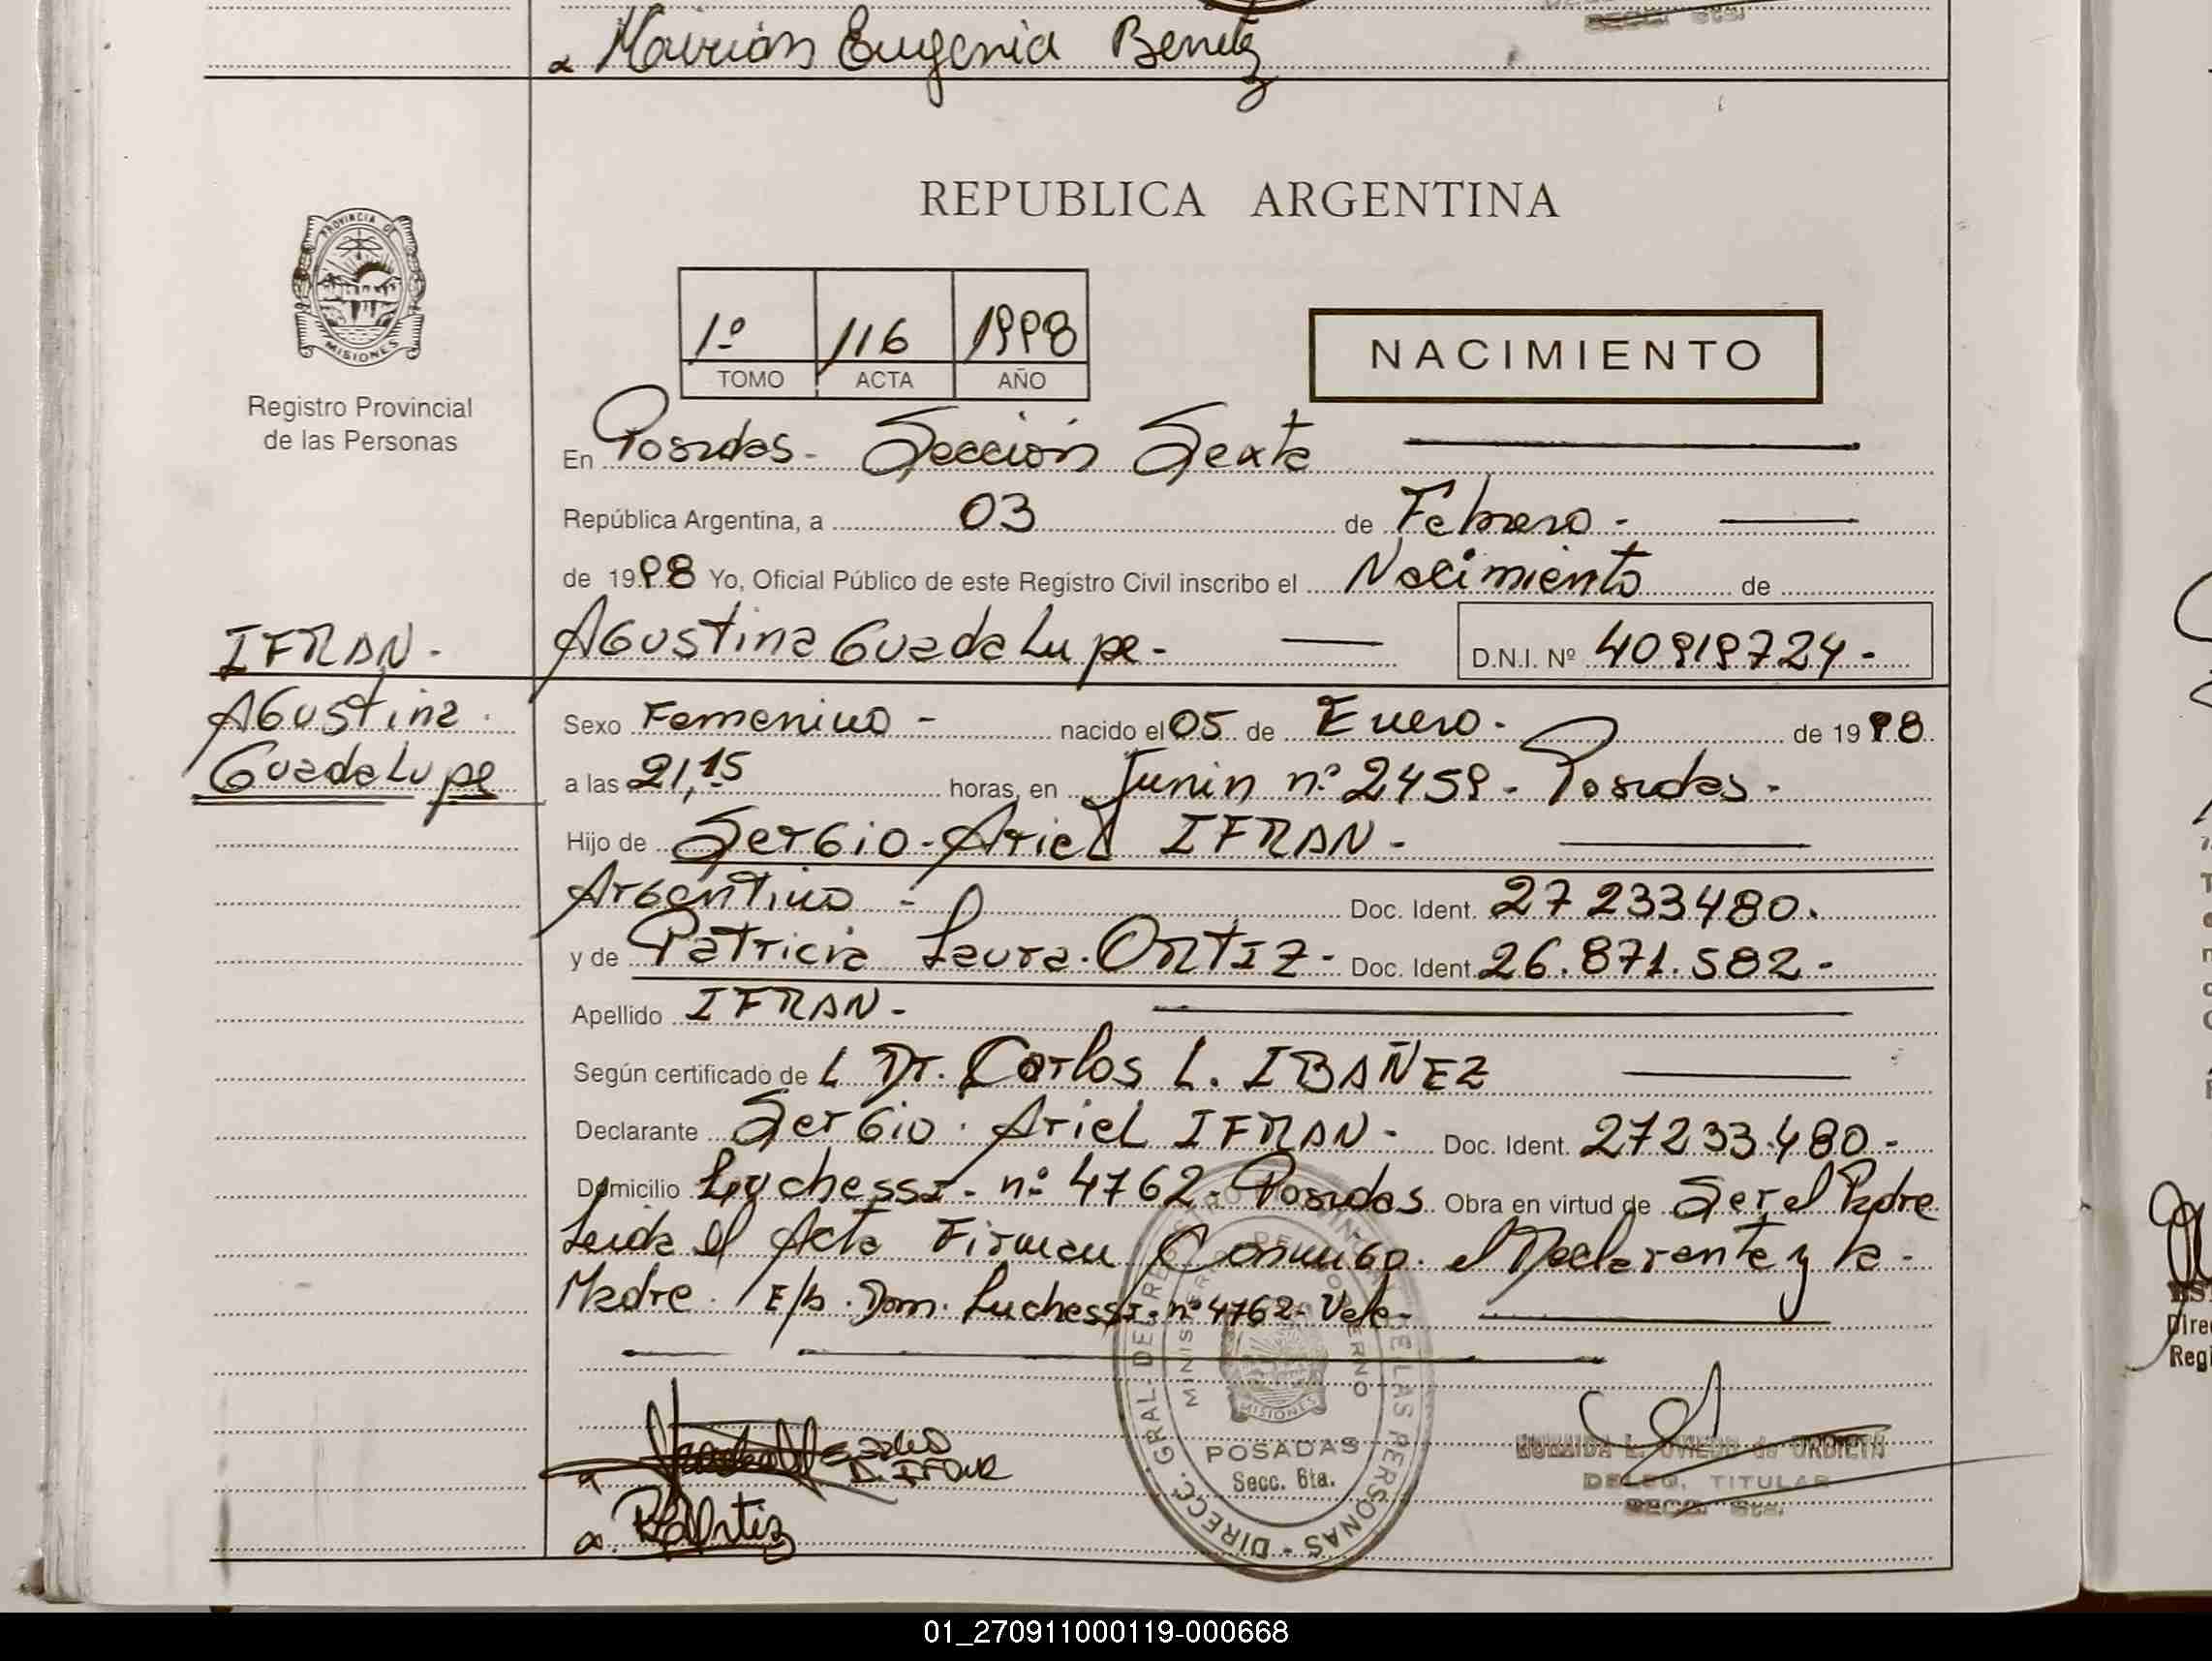 a Mirian Eugenia Benitez
REPUBLICA ARGENTINA
PROVINCIA DE
MISIONES
Registro Provincial
de las Personas
1º 116 1998
TOMO ACTA AÑO
NACIMIENTO
En Posadas - Sección Sexta
República Argentina, a 03 de Febrero -
de 1998 Yo, Oficial Público de este Registro Civil inscribo el Nacimiento de
IFRAN -
Agustina
Guadalupe
Agustina Guadalupe - D.N.I. Nº 40919724 -
Sexo Femenino - nacido el 05 de Enero - de 1998
a las 21,15 horas, en Junin nº 2459 - Posadas -
Hijo de Sergio - Ariel IFRAN -
Argentino - Doc. Ident. 27 233480.
y de Patricia Laura ORTIZ - Doc. Ident. 26.871.582 -
Apellido IFRAN -
Según certificado de L Dr. Carlos L. IBAÑEZ
Declarante Sergio Ariel IFRAN - Doc. Ident. 27233.480 -
Domicilio Luchessi - nº 4762 - Posadas Obra en virtud de Ser el Padre
Leida el Acta Firman Conmigo el Declarante y la
Madre. E/b. Dom. Luchessi - nº 4762 - Vale -
DIRECC. GRAL. DEL REGISTRO PROVINCIAL DE LAS PERSONAS
MINISTERIO DE GOBIERNO
MISIONES
POSADAS
Secc. 6ta.
L. OVIEDO de URBIETA
DELEG. TITULAR
SECC. 6ta.
01_270911000119-000668